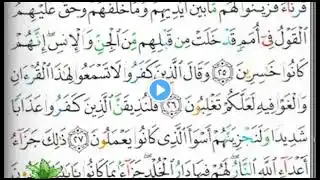 قُرَنَآءَ فَزَيَّنُوا۟ لَهُم مَّا بَيْنَ أَيْدِيهِمْ وَمَا خَلْفَهُمْ وَحَقَّ عَلَيْهِمُ
ٱلْقَوْلُ فِىٓ أُمَمٍ قَدْ خَلَتْ مِن قَبْلِهِم مِّنَ ٱلْجِنِّ وَٱلْإِنسِ إِنَّهُمْ
كَانُوا۟ خَٰسِرِينَ ٢٥ وَقَالَ ٱلَّذِينَ كَفَرُوا۟ لَا تَسْمَعُوا۟ لِهَٰذَا ٱلْقُرْءَانِ
وَٱلْغَوْا۟ فِيهِ لَعَلَّكُمْ تَغْلِبُونَ ٢٦ فَلَنُذِيقَنَّ ٱلَّذِينَ كَفَرُوا۟ عَذَابًا
شَدِيدًا وَلَنَجْزِيَنَّهُمْ أَسْوَأَ ٱلَّذِى كَانُوا۟ يَعْمَلُونَ ٢٧ ذَٰلِكَ جَزَآءُ
أَعْدَآءِ ٱللَّهِ ٱلنَّارُ لَهُمْ فِيهَا دَارُ ٱلْخُلْدِ جَزَآءًۢ بِمَا كَانُوا۟